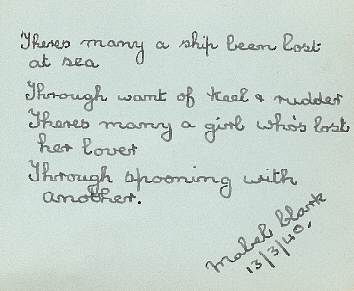 Theres many a ship been lost
at sea
Through want of keel & rudder
Theres many a girl who's lost
her lover
Through spooning with
another.
Mabel Clark
13/3/40.